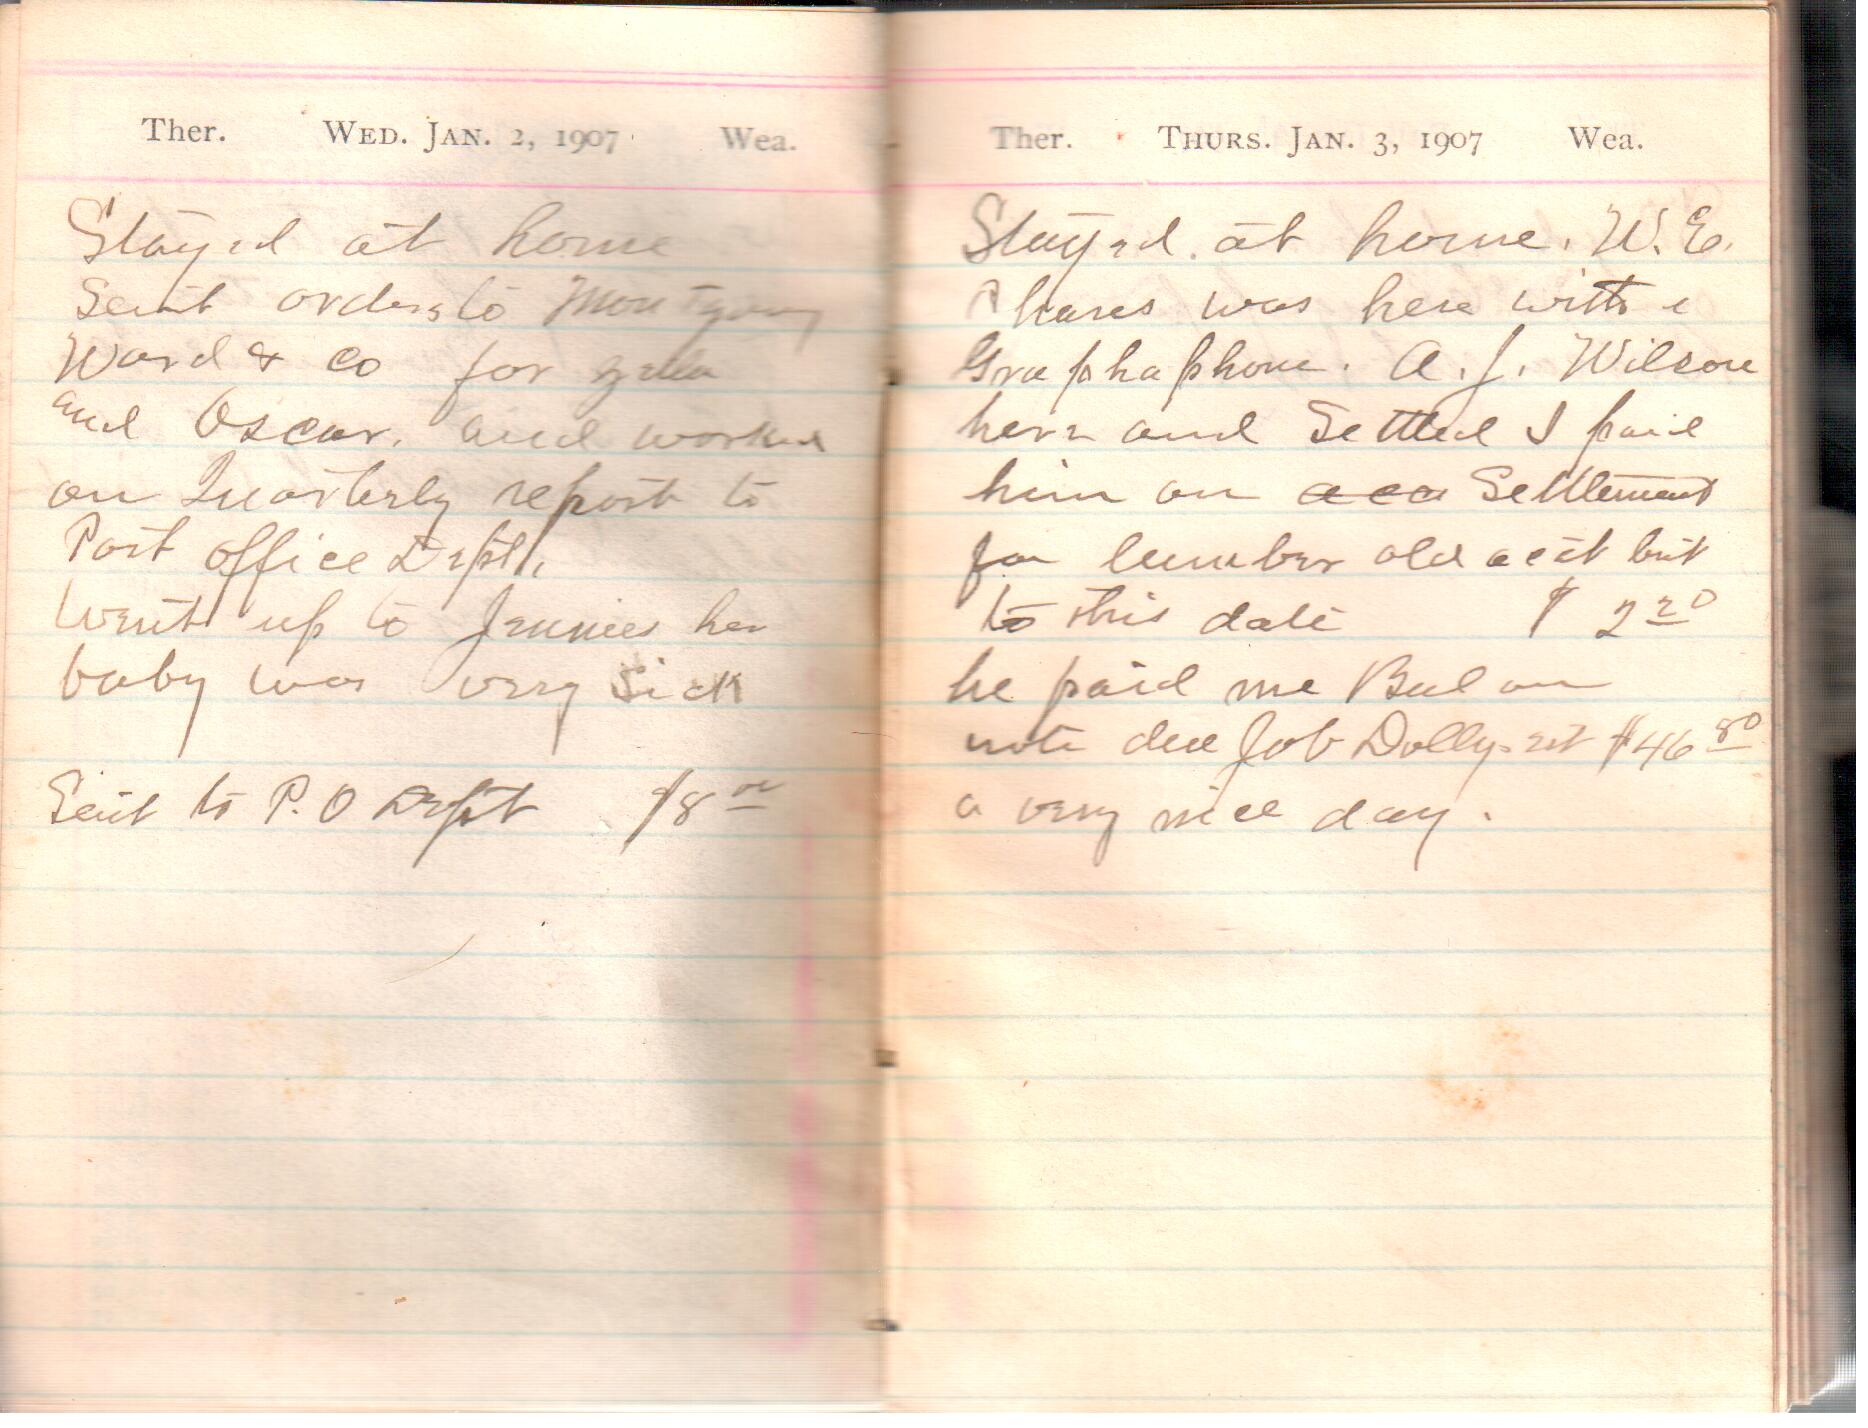 Ther. WED. JAN. 2, 1907 Wea.
Stayed at home
Sent orders to Montgomy
Ward & Co for
and Oscar. and worked
on Quarterly report to
Post office Dept.
Went up to Jennies her
baby was very Sick
Sent to P.O Dept $8 00
Ther. THURS. JAN. 3, 1907 Wea.
Stayed at home. W. E.
Phares was here with a
Graphaphone. A. J. Wilson
here and Settled I paid
him on Settlement
for lumber old acct
to this date $ 2 20
he paid me Bal on
note due Job Dolly est $46 80
a very nice day.